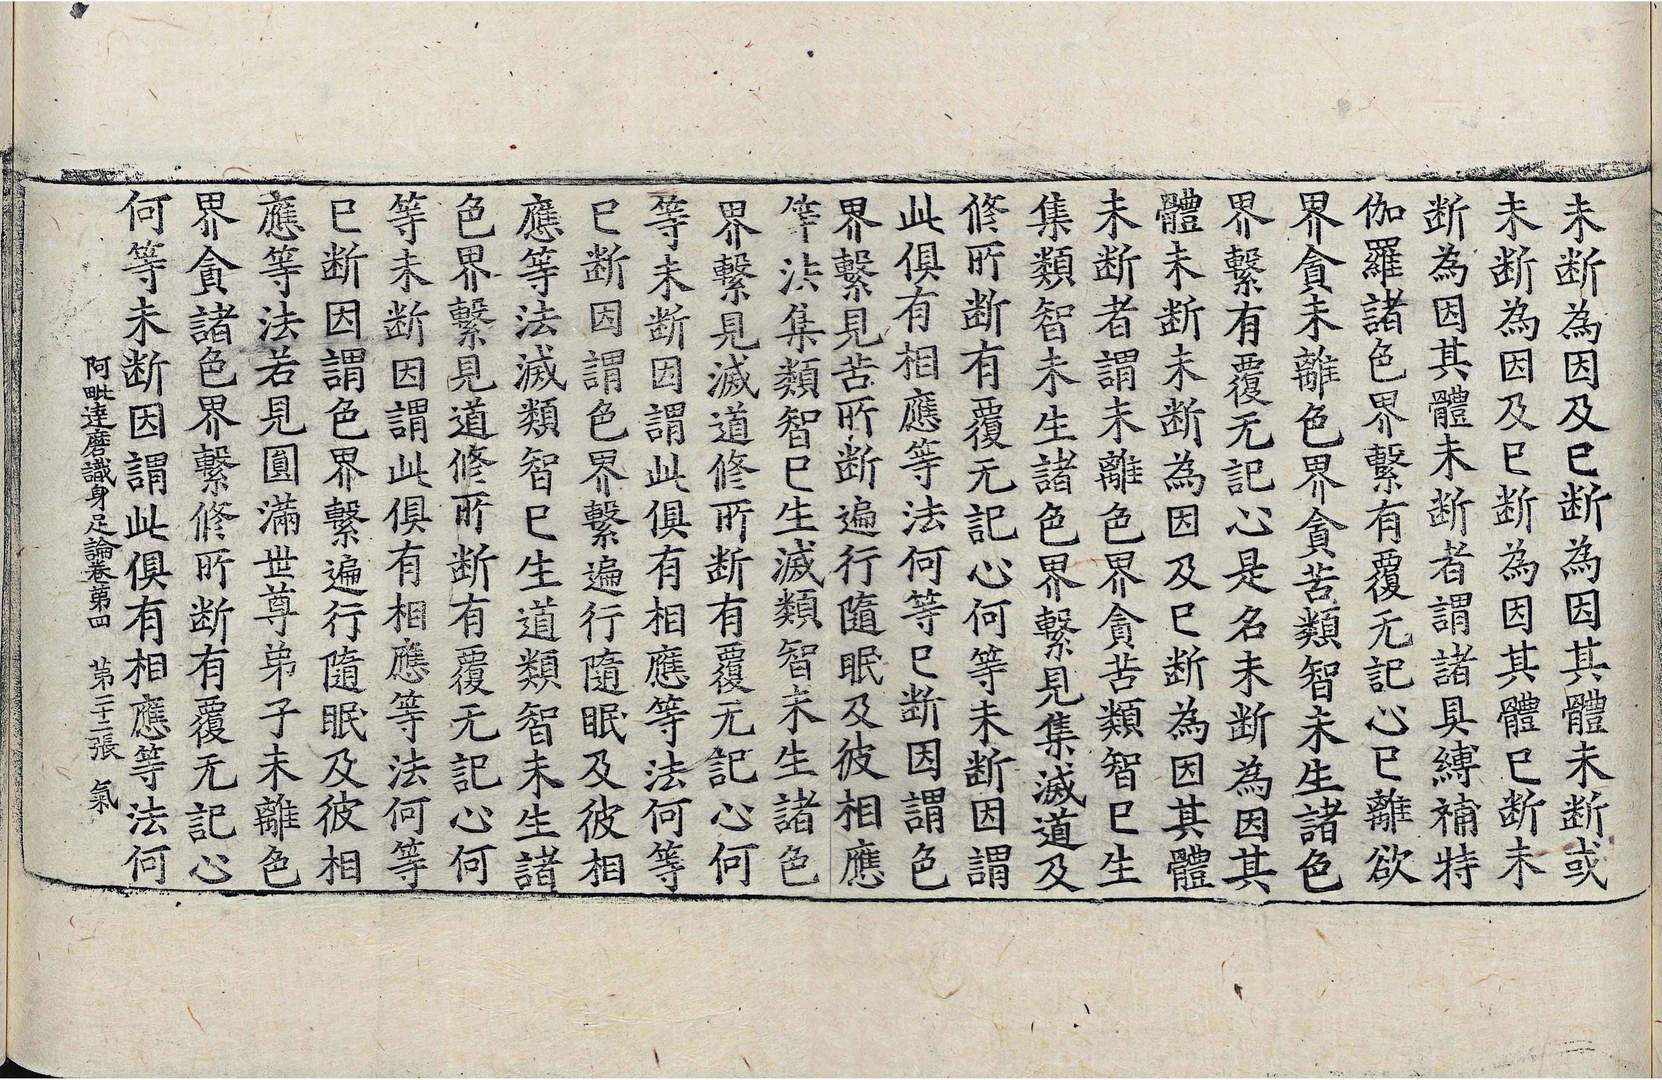 未断為因及已断為因其體未断或
未断為因及已断為因其體已断未
断為因其體未断者謂諸具縛補特
伽羅諸色界繫有覆无記心已離欲
界貪未離色界貪苦類智未生諸色
界繫有覆无記心是名未断為因其
體未断未断為因及已断為因其體
未断者謂未離色界貪苦類智已生
集類智未生諸色界繫見集滅道及
修所断有覆无記心何等未断因謂
此俱有相應等法何等已断因謂色
界繫見苦所断遍行隨眠及彼相應
等法集類智已生滅類智未生諸色
界繫見滅道修所断有覆无記心何
等未断因謂此俱有相應等法何等
已断因謂色界繫遍行隨眠及彼相
應等法滅類智已生道類智未生諸
色界繫見道修所断有覆无記心何
等未断因謂此俱有相應等法何等
已断因謂色界繫遍行隨眠及彼相
應等法若見圓滿世尊弟子未離色
界貪諸色界繫修所断有覆无記心
何等未断因謂此俱有相應等法何
阿毗達磨識身足論卷第四 第二十二張 氣